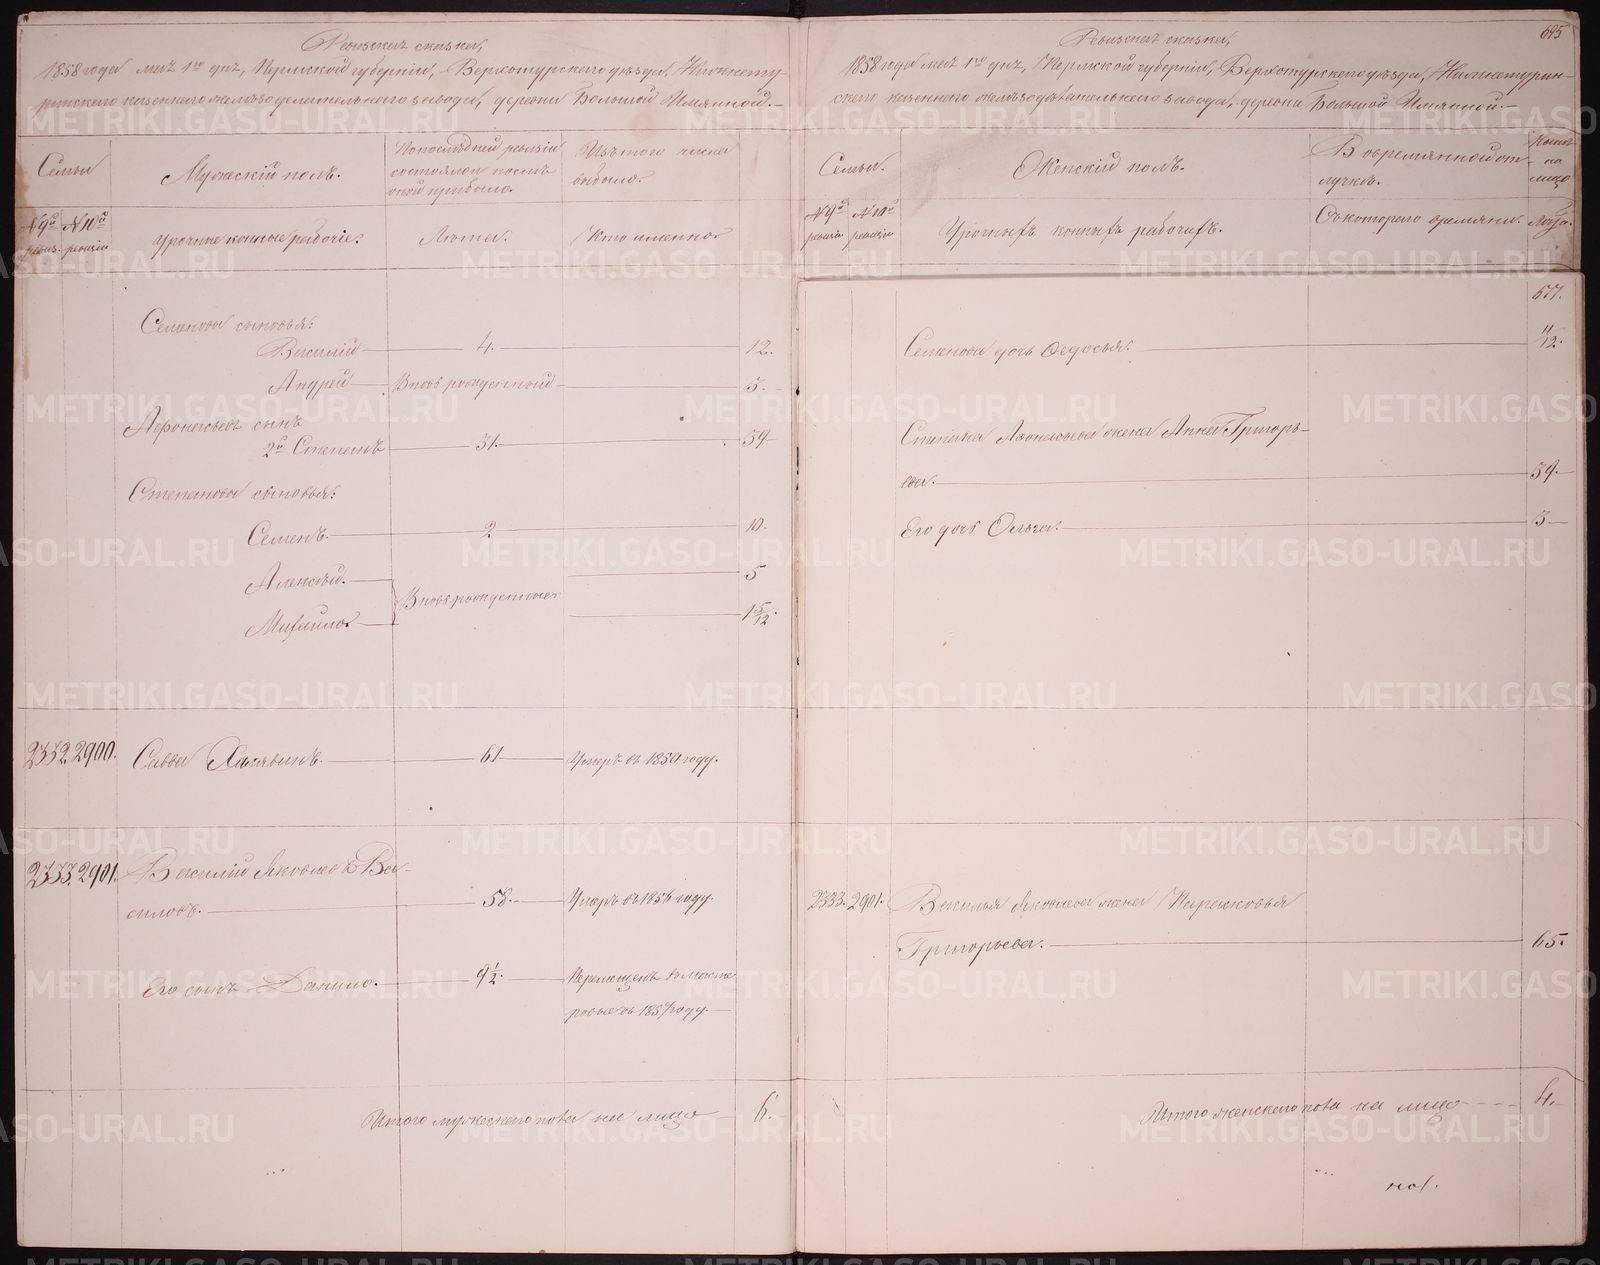 Ревизская сказка,
1858 года мая 1го дня, Пермской губернии, Верхотурского уезда, Нижнету-
ринского казенного железоделательного завода, деревни Большой Именной.-
Семьи
Мужеский полъ.
По последней ревизіи
состояло и после
оной прибыло.
Изъ того числа
выбыло.
№ 9й
ревиз.
№ 10й
ревизіи
Урочные конные рабочіе.
Лета.
Кто именно
Семеновы сыновья:
Василій 4. 12.
Андрей Вновь рожденный 5.
Афонасьевъ сынъ
2й Степанъ 31. 59
Степановы сыновья:
Семенъ. 2 10.
Алексей. 5
Вновь рожденные
Михаило. 1 5/12.
2332. 2900. Савва 61 Умеръ въ 1850 году.
2333. 2901. Василій Яковлевъ Ва-
силовъ. 58. Умеръ въ 1856 году.
Его сынъ Данило. 9 1/2. Перемещенъ въ масте
ровые въ 1857 году.
Итого мужеского пола на лицо 6.
685
Ревизская сказка,
1858 года мая 1го дня, Пермской губерніи, Верхотурского уезда, Нижнетурин-
ского казенного железоделательного завода, деревни Большой Именной.-
Семьи.
Женскій полъ.
Во временной от-
лучке.
на
лицо
№ 9й
ревизіи
№ 10й
ревизіи
Урочныхъ конныхъ рабочихъ.
Съ которого времяни.
Лета.
677.
Семенова дочь Федосья. 11/12.
Степана Афонасьева жена Анна Григорь-
ева. 59.
Его дочь Ольга. 3
2333. 2901. Василья Яковлева жена Парасковья
Григорьева. 65.
Итого женского пола на лицо 4.
METRIKI.GASO-URAL.RU